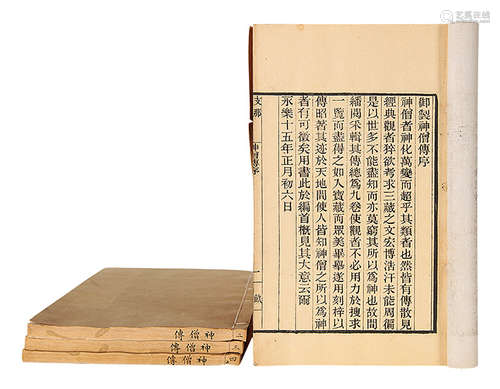 御製神僧傳序
神僧者神化萬變而超乎其類者也然皆有傳散見
經典觀者猝欲考求三藏之文宏博浩汗未能周徧
是以世多不能盡知而亦莫窮其所以為神也故間
繙閱采輯其傳總為九卷使觀者不必用力於搜求
一覽而盡得之如入寶藏而眾美畢舉遂用刻梓以
傳昭著其迹於天地間使人皆知神僧之所以為神
者有可徵矣用書此於編首概見其大意云爾
永樂十五年正月初六日
支那
神僧傳序
一
神僧傳
神僧傳
神僧傳
三
四